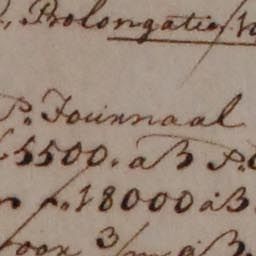 Prolongatie
P.r Journaal
5500. a 3 P.
18000 a 3
voor 3/m a 3.